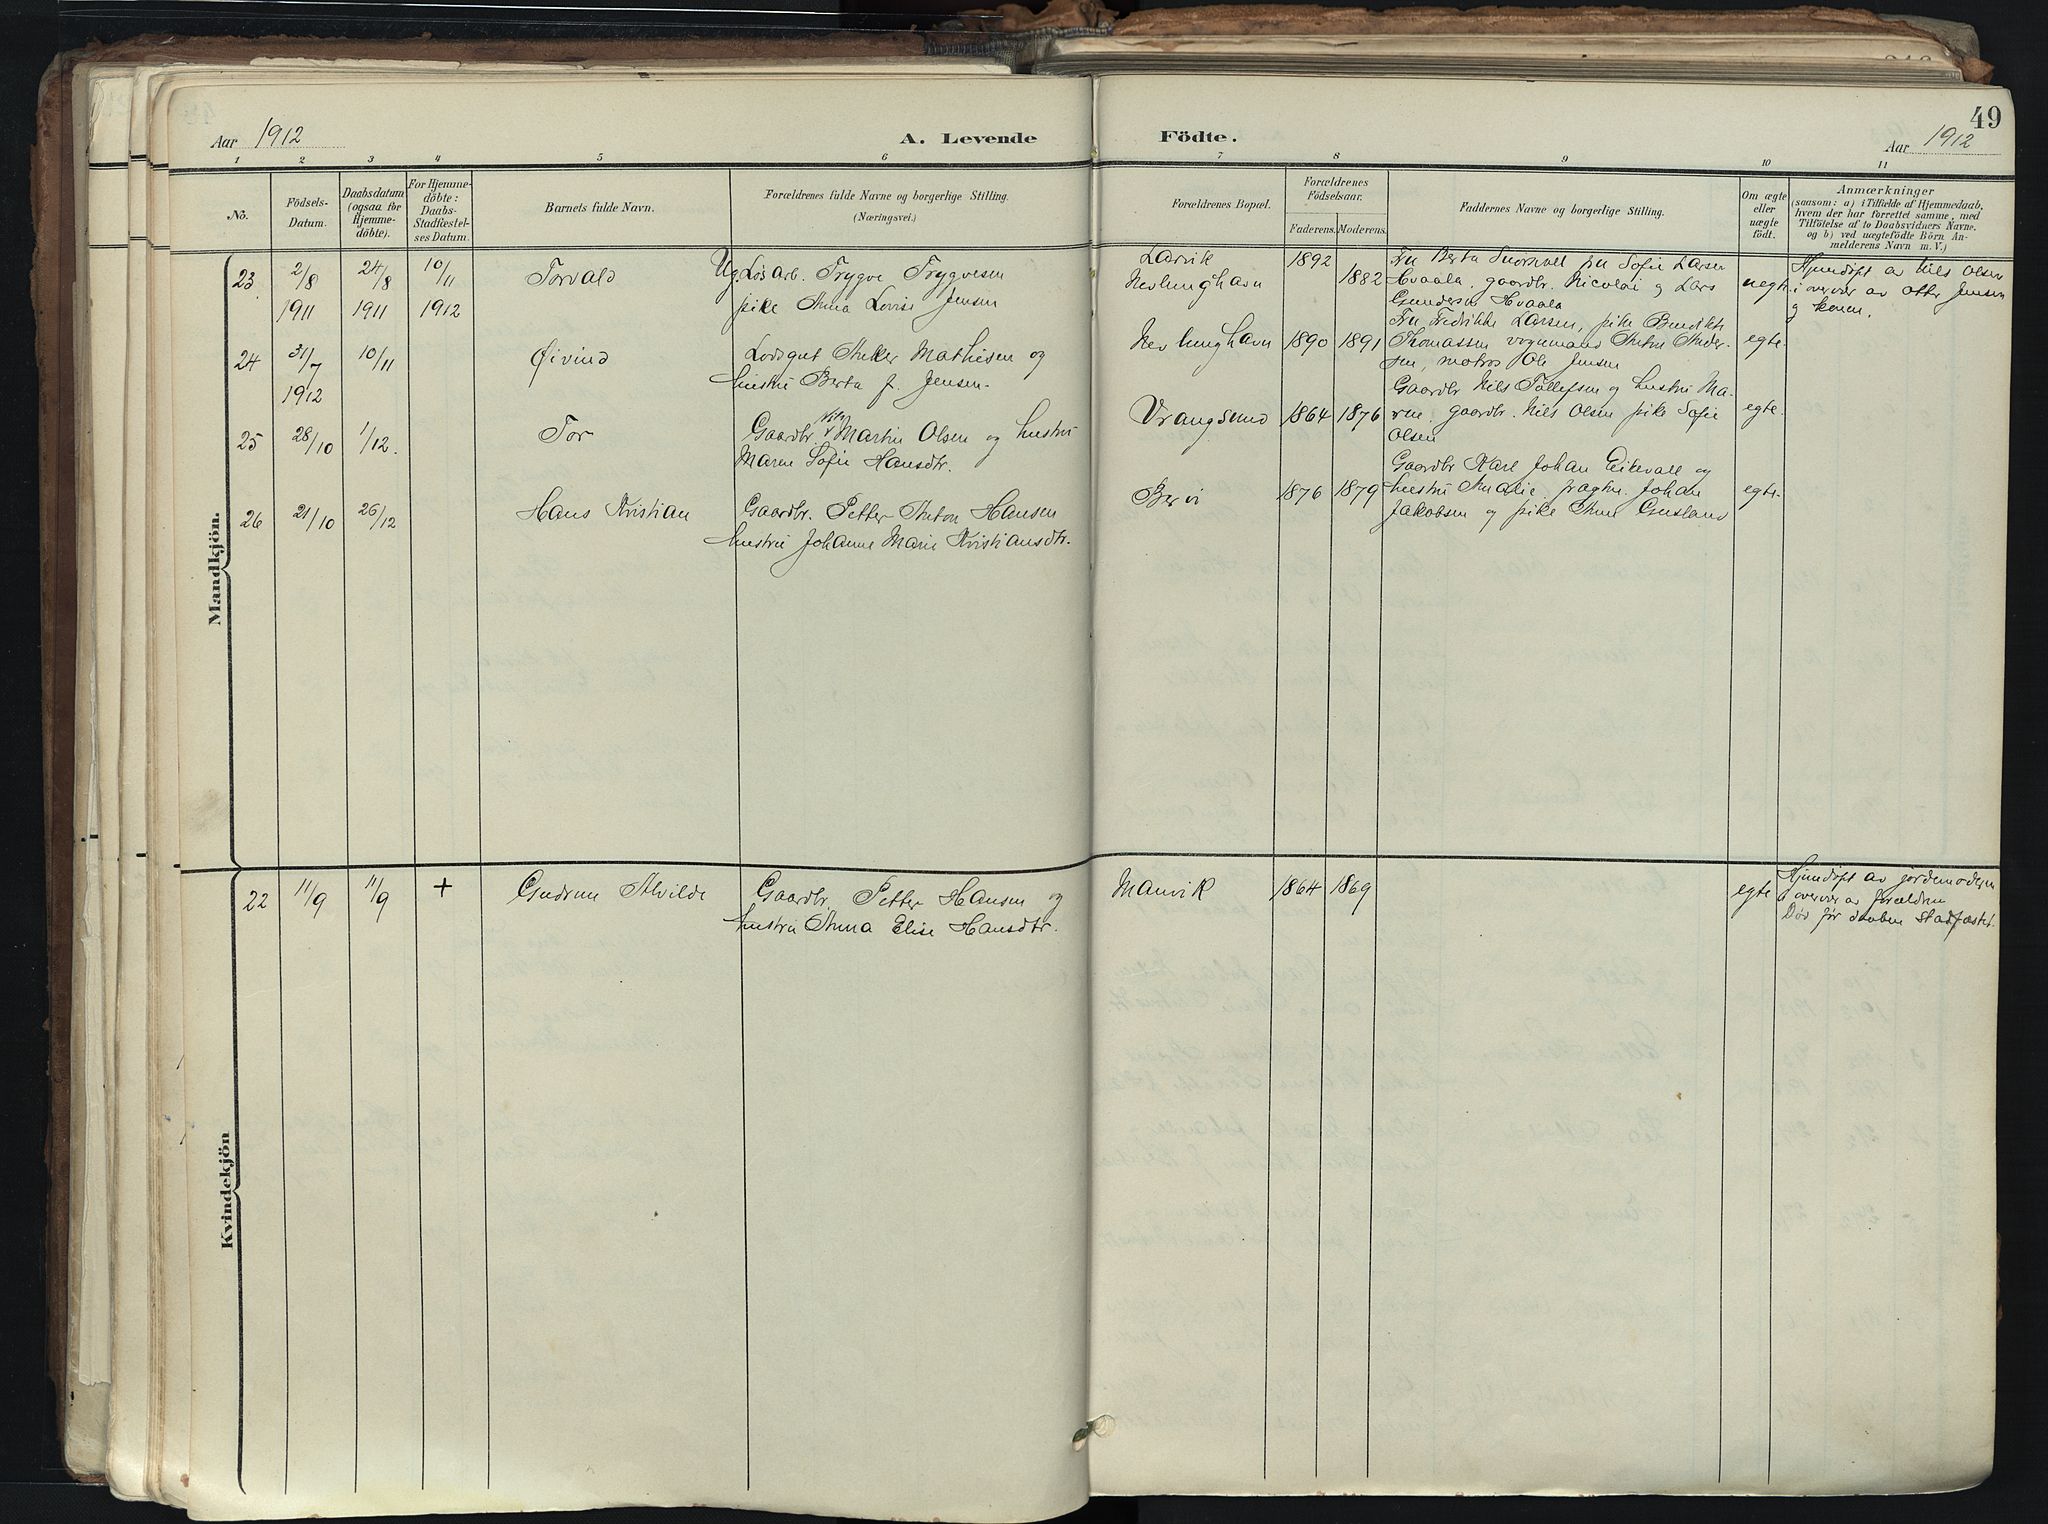 49
Aar 1912
A. Levende Födte.
Aar 1912
1 2 3 4 5 6 7 8 9 10 11
No.
Födsels-
Datum.
Daabsdatum
(ogsaa for
Hjemme-
döbte).
For Hjemme-
döbte:
Daabs-
Stadfæstel-
ses Datum.
Barnets fulde Navn.
Forældrenes fulde Navne og borgerlige Stilling.
(Næringsvei.)
Forældrenes Bopæl.
Forældrenes
Födselsaar.
Faderens. Moderens.
Faddernes Navne og borgerlige Stilling.
Om ægte
eller
uægte
födt.
Anmærkninger
(saasom: a) i Tilfælde af Hjemmedaab,
hvem der har forrettet samme, med
Tilföielse af to Daabsvidners Navne.
og b) ved uægtefödte Börn An-
melderens Navn m. V.)
Mandkjön.
23
2/8
1911
24/8
1911
10/11
1912
Torvald
Ug. Løsarb. Trygve Trygvesen
pike Anna Lovise Jensen
Larvik
Nevlunghavn
1892
1882
Fru Berta fru Sofie Larsen
Hvaala, gaardbr. Nicolai og Lars
Gundersen Hvaala
uegte
Hjemdøpt av Nils Olsen
i overvær av Otter Jensen
og konen.
24
31/7
1912
10/11
Øivind
Lodsgut Anker Mathisen og
hustru Berta f. Jensen.
Nevlunghavn
1890
1891
Fru Fredrikke Larsen, pike Benedikte
Thomassen vognmand Anton Ander-
sen, matros Ole Jensen
egte.
25
28/10
1/12.
Tor
Gaardbr. Nils Martin Olsen og hustru
Maren Sofie Hansdtr.
Vrangsund
1864
1876
Gaardbr Nils Tollefsen og hustru Ma-
ren, gaardbr. Nils Olsen pike Sofie
Olsen
egte.
26
21/10
26/12
Hans Kristian
Gaardbr. Petter Anton Hansen
hustru Johanne Marie Kristiansdtr.
Bervi
1876
1879
Gaardbr Karl Johan Eikevall og
hustru Amalie, Johan
Jakobsen og pike Anne Gusland
egte.
Kvindekjön
22
11/9
11/9
+
Gudrun Alvilde
Gaardbr. Petter Hansen og
hustru Anna Elise Hansdtr.
Manvik
1864
1869
egte
Hjemdøpt av jordemoderen
i overvær av forældrene
Død før daaben stadfæstet.